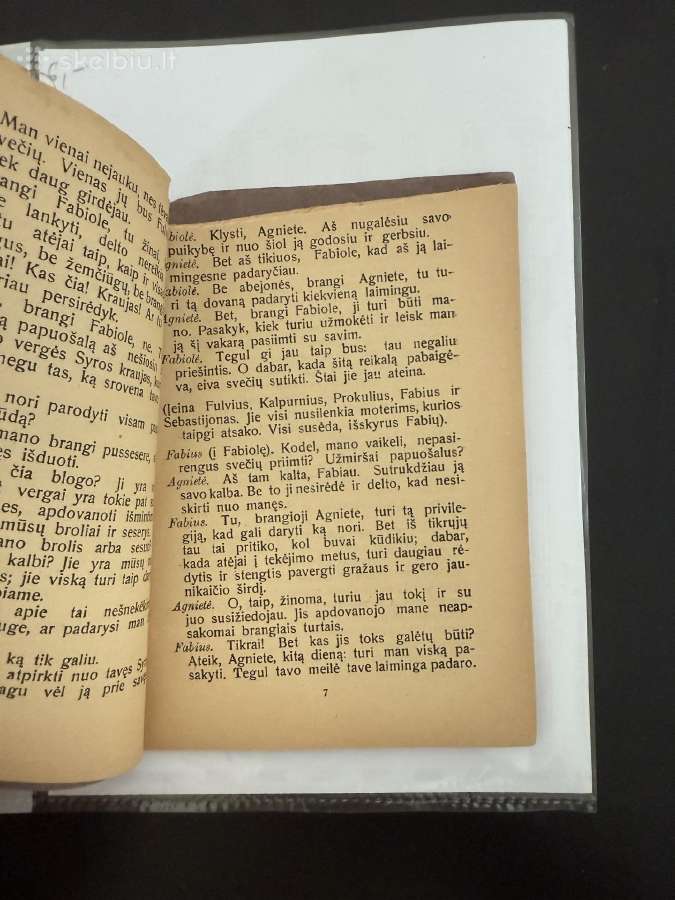 skelbiu.lt
Man vienai nejauku, nes
svečių. Vienas jų bus
daug girdėjau.
Fabiole, tu žinai,
lankyti, delto nereikia
atėjai taip, kaip ir
be žemčiūgų, be
Kas čia! Kraujas! Ar
persirėdyk.
brangi Fabiole, ne.
papuošalą aš nešiosiu
vergės Syros kraujas,
negu tas, ką srovena
nori parodyti visam
mano brangi pusseserė,
išduoti.
čia blogo? Ji yra
vergai yra tokie pat
apdovanoti
mūsų broliai ir
brolis arba
kalbi? Jie yra mūsų
jie viską turi taip
apie tai nešnekėkim
ar padarysi man
ką tik galiu.
atpirkti nuo tavęs
vėl ją prie
Fabiolė. Klysti, Agniete. Aš nugalėsiu savo
puikybę ir nuo šiol ją godosiu ir gerbsiu.
Agnietė. Bet aš tikiuos, Fabiole, kad aš ją lai-
mingesne padaryčiau.
Fabiolė. Be abejonės, brangi Agniete, tu tu-
ri tą dovaną padaryti kiekvieną laimingu.
Agnietė. Bet, brangi Fabiole, ji turi būti ma-
no. Pasakyk, kiek turiu užmokėti ir leisk man
ją šį vakarą pasiimti su savim.
Fabiolė. Tegul gi jau taip bus: tau negaliu
priešintis. O dabar, kada šitą reikalą pabaigė-
va, eiva svečių sutikti. Štai jie jau ateina.
(Įeina Fulvius, Kalpurnius, Prokulius, Fabius ir
Sebastijonas. Jie visi nusilenkia moterims, kurios
taipgi atsako. Visi susėda, išskyrus Fabių).
Fabius (į Fabiolę). Kodel, mano vaikeli, nepasi-
rengus svečių priimti? Užmiršai papuošalus?
Agnietė. Aš tam kalta, Fabiau. Sutrukdžiau ją
savo kalba. Be to ji nesirėdė ir delto, kad nesi-
skirti nuo manęs.
Fabius. Tu, brangioji Agniete, turi tą privile-
giją, kad gali daryti ką nori. Bet iš tikrųjų
tau tai pritiko, kol buvai kūdikiu; dabar,
kada atėjai į tekėjimo metus, turi daugiau rė-
dytis ir stengtis pavergti gražaus ir gero jau-
nikaičio širdį.
Agnietė. O, taip, žinoma, turiu jau tokį ir su
juo susižiedojau. Jis apdovanojo mane neap-
sakomai brangiais turtais.
Fabius. Tikrai! Bet kas jis toks galėtų būti?
Ateik, Agniete, kitą dieną: turi man viską pa-
sakyti. Tegul tavo meilė tave laiminga padaro.
7